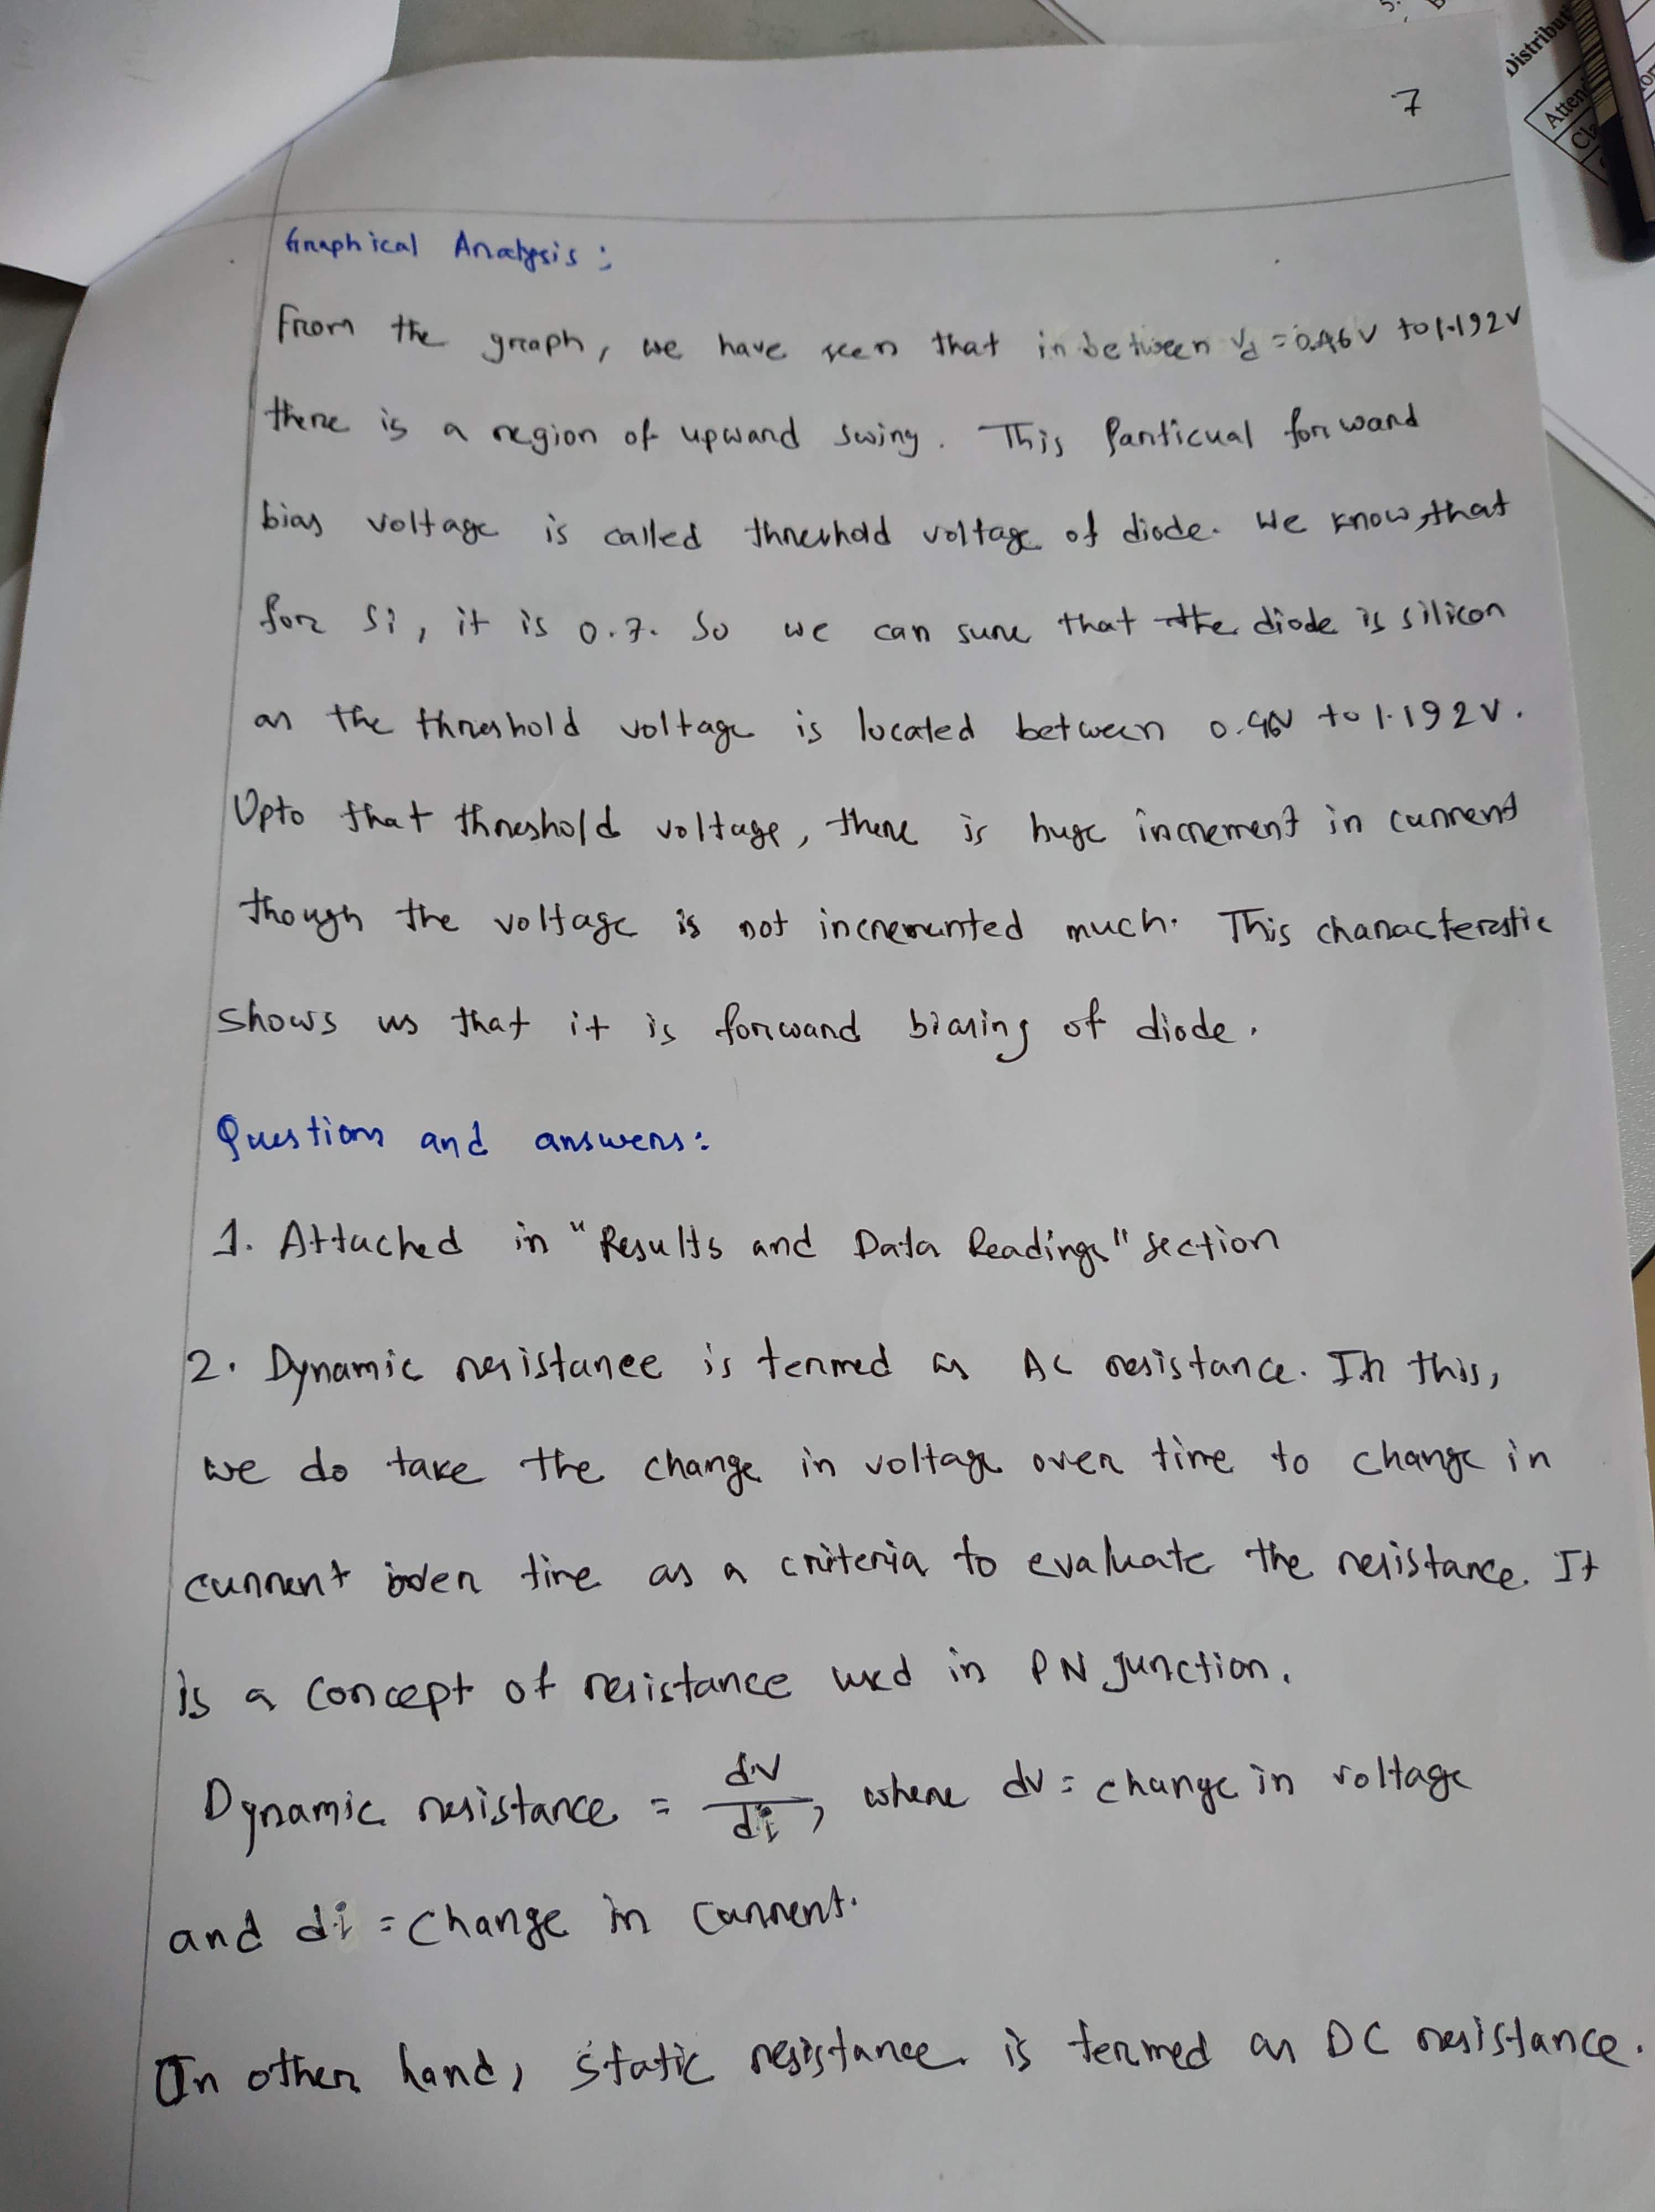 7
Distribut
Atten
Cla
Graphical Analysis:
From the graph, we have seen that in between Vd = 0.46V to 1.192V
there is a region of upward swing. This Particual forward
bias voltage is called threshold voltage of diode. We know, that
for Si, it is 0.7. So we can sure that the diode is silicon
as the threshold voltage is located between 0.46V to 1.192V.
Upto that threshold voltage, there is huge increment in current
though the voltage is not incremented much. This characterestic
shows us that it is forward biasing of diode.
Questions and answers:
1. Attached in "Results and Data Readings" section
2. Dynamic resistance is termed as AC resistance. In this,
we do take the change in voltage over time to change in
current over time as a criteria to evaluate the resistance. It
is a concept of resistance used in PN junction.
Dynamic resistance = dv/di, where dv = change in voltage
and di = change in current.
On other hand, static resistance is termed as DC resistance.